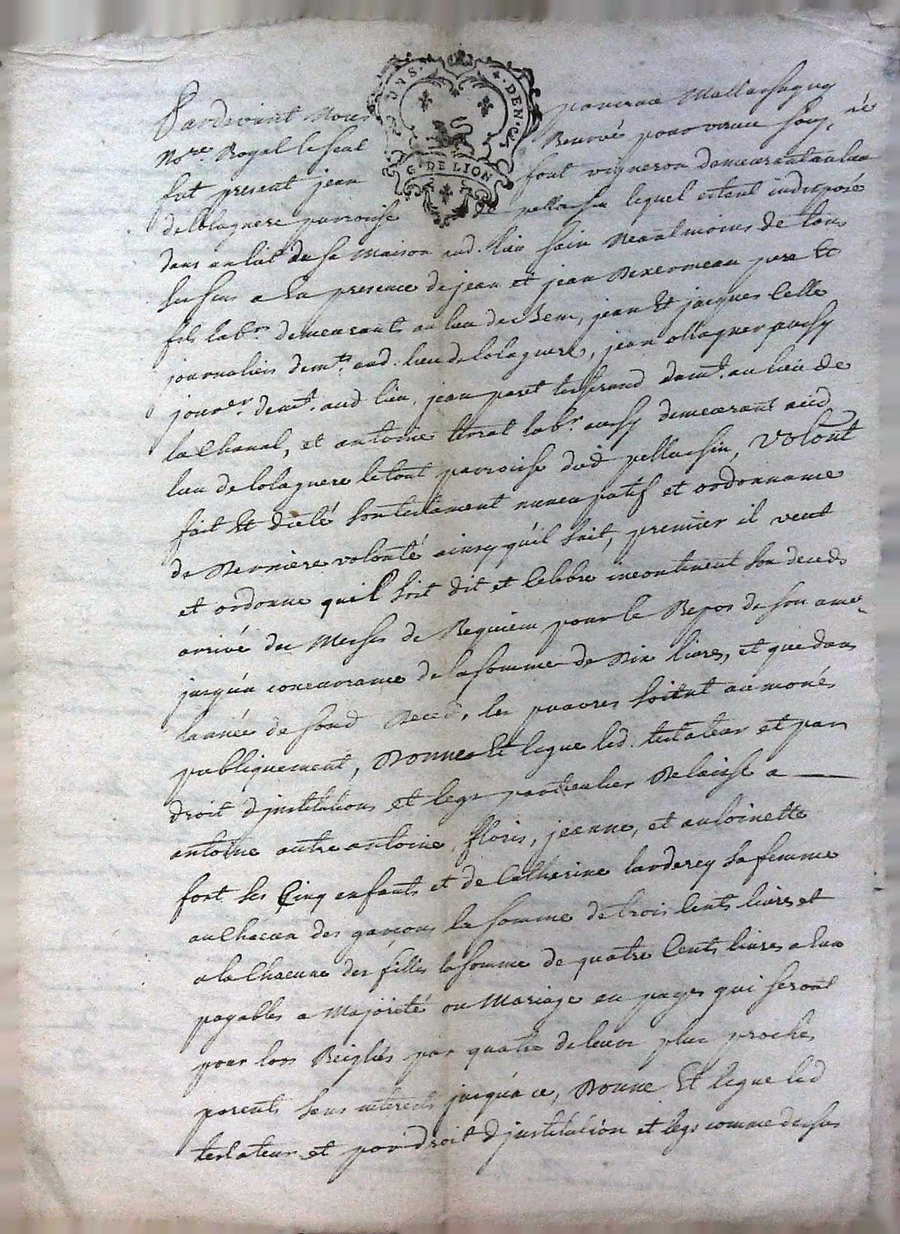 Pardevant Nous
Nore. Royal le seal Benivé
fut present jean font vigneron demeurant au lieu
de lolagnere parroisse de pellassin lequel etant indisposé
dans un lit de sa Maison aud. lieu sain Neantmoins de tous
ses sens a en presence de jean et jean pere et
fils labr. demeurants au lieu de jean et jacques Celle
journaliers demts. aud. lieu de lolagnere, jean ollagner aussy
jourer. demt. aud. lieu, jean paret demt. au lieu de
la Chanal, et antoine labr. aussy demeurant aud
lieu de lolagnere le tout parroisse dud pellassin, Volont
fait et dicté son testament nuncupatif et ordonnance
de Derniere volonté ainsy qu'il suit, premier il veut
et ordonne quil soit dit et Celebre incontinent son deceds
arrivé des Messes de Requiem pour le Repos de son ame
jusqu'a concurrance de la somme de Dix livres, et que dans
lannée de sond Deced, les pauvres soient aumonés
publiquement, Donne et legue led. testateur et par
droit d'institutions et legs particulier Delaisse a
antoine autre antoine, floris, jeanne, et antoinette
font ses Cinq enfants et de Catherine sa femme
au Chacun des garçons la somme de trois cents livres et
a la Chacune des filles la somme de quatre Cents livres a eux
payables a Majorité ou Mariage en payes qui seront
pour lors Reiglés par quatre de leurs plus proches
parents sans interets jusqu'a ce, Donne et legue led
testateur et par droit d'institution et legs comme dessus
G. DE LION
DEN